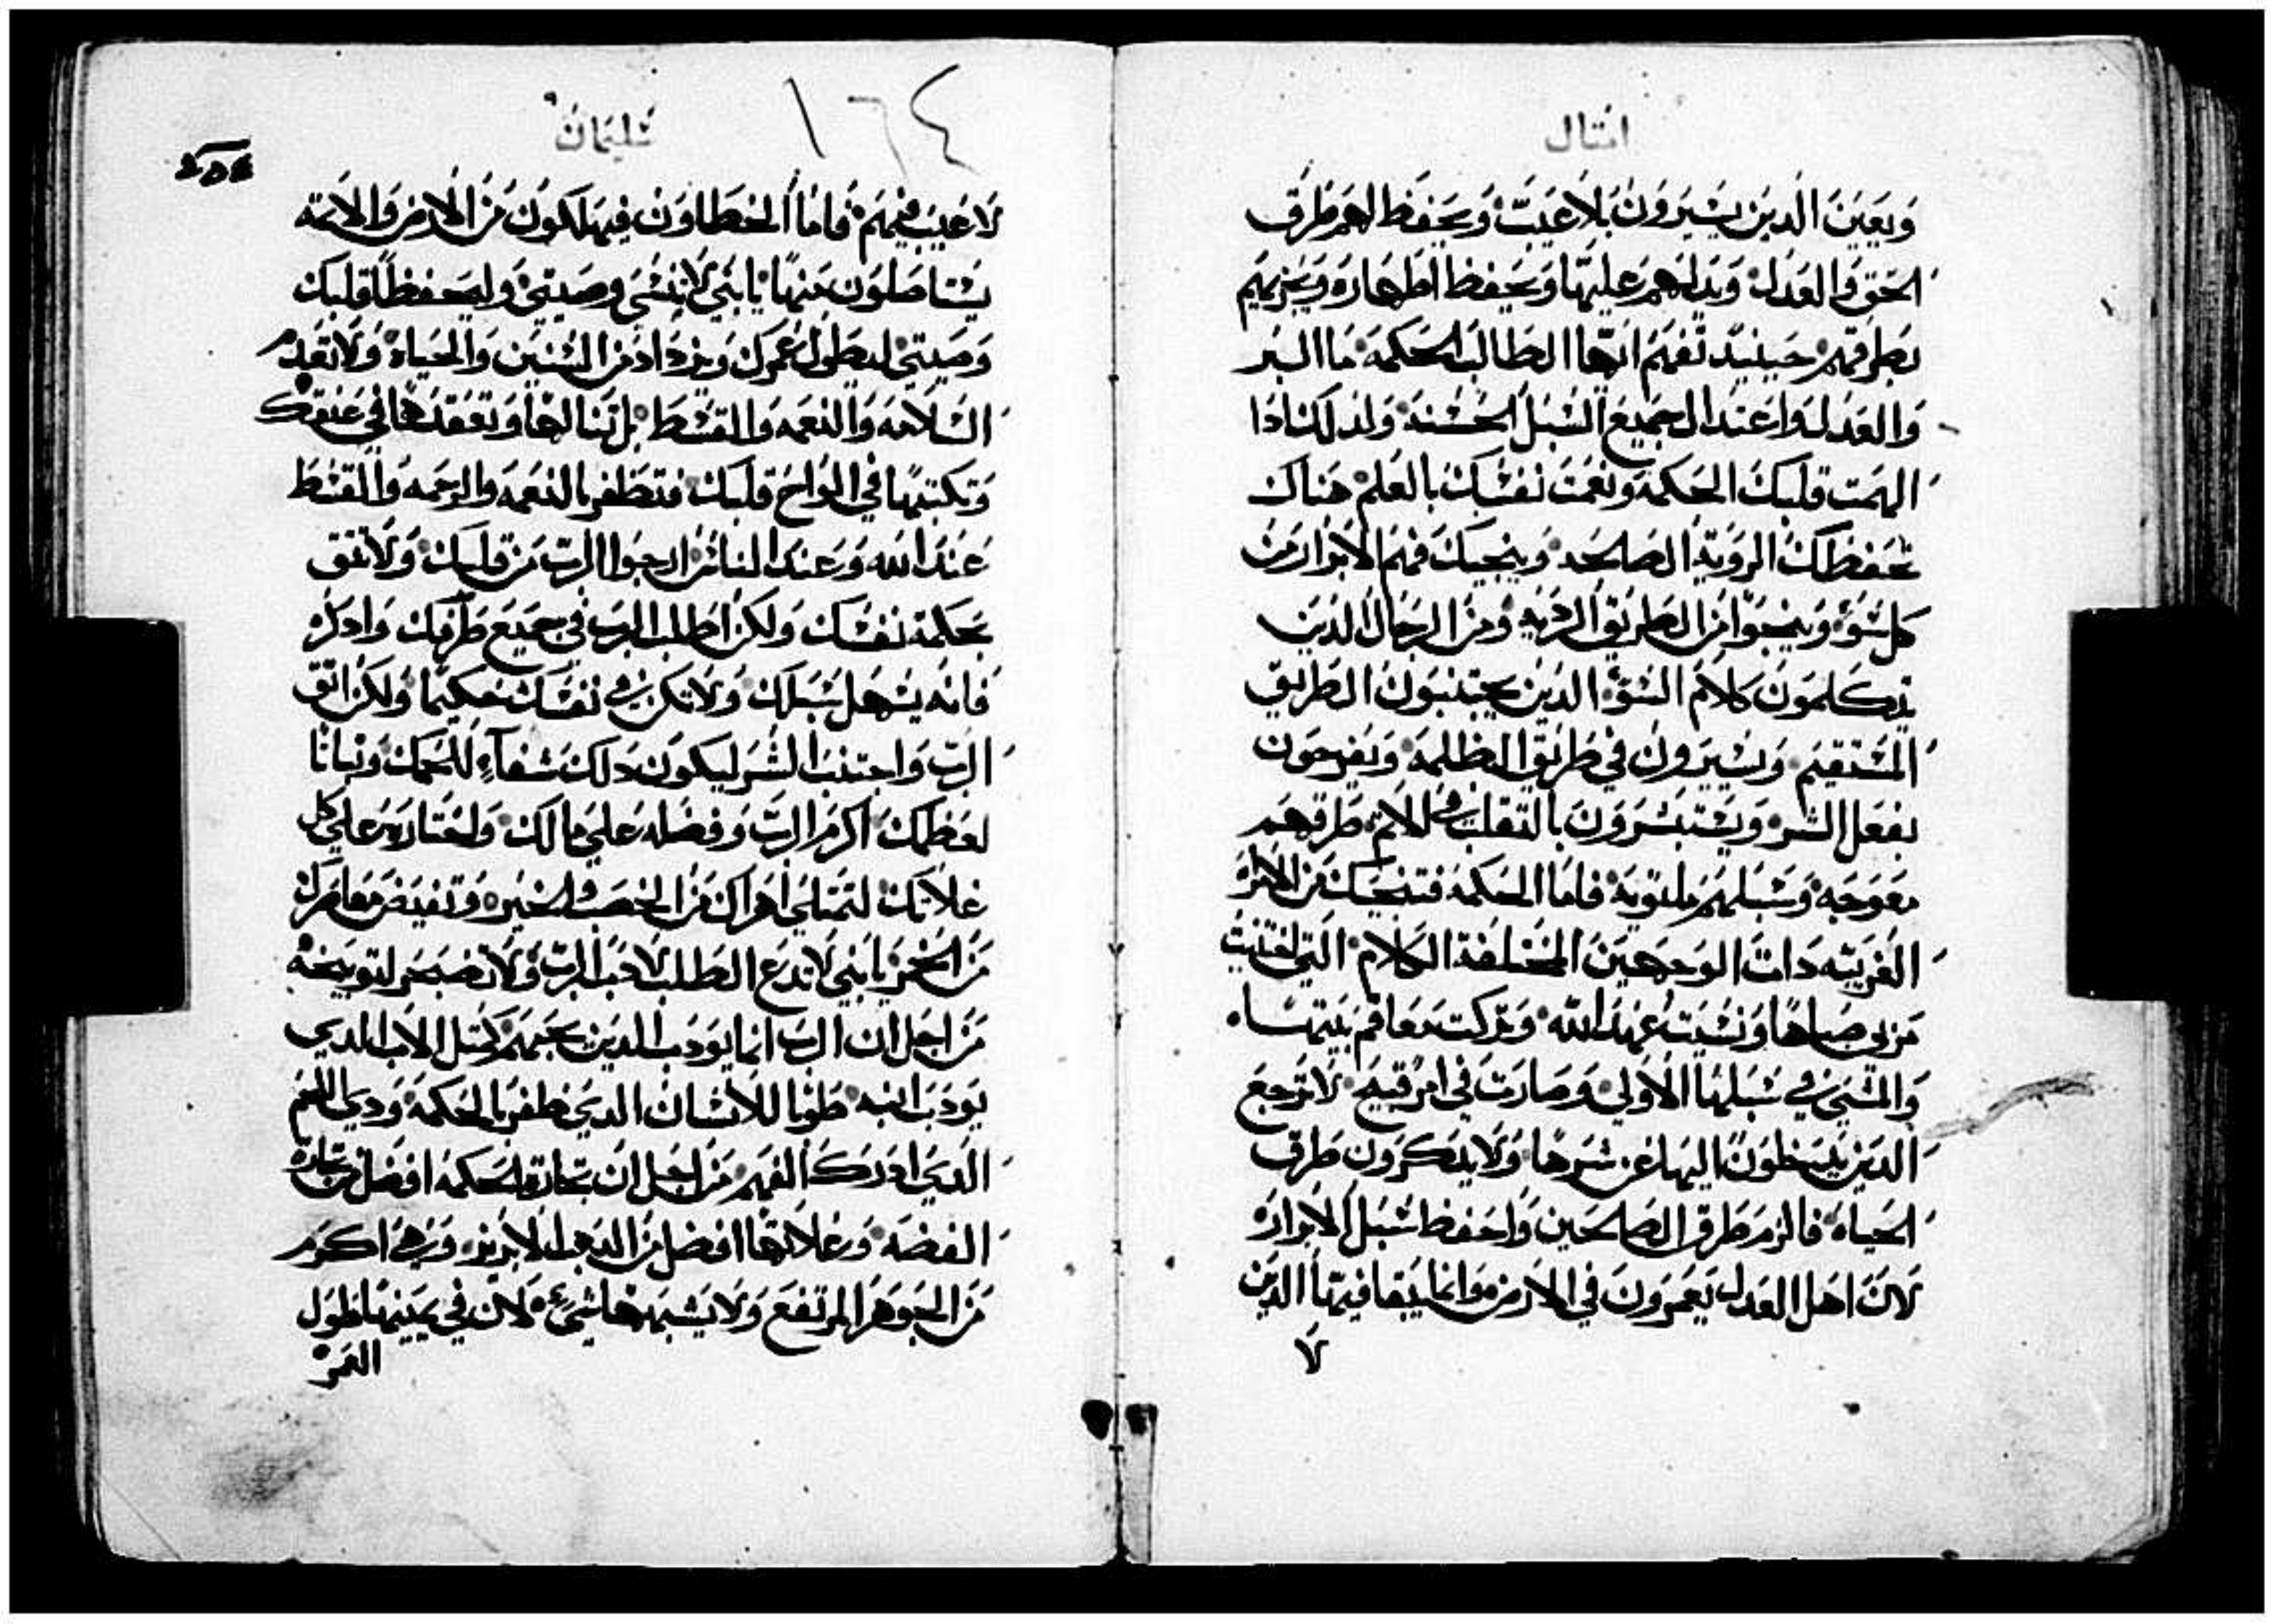 امتال
وَيعَينَ الدين يسَيرَوُن بَلاعَيبّ وَيحَفظ لهم طرَق
الحَق وَالعَدل وَيدلهم عليهَا وَيحَفظ اطهاره وَيجزيهم
بطرقهم حَينيد تفهم ايّها الطالب الحَكمَة ما البر
وَالعَدل واعَتدال جميع السُبل الحسَنة وَلدلك ادا
الهمت قلبك الحَكمَة وَنعمَت نفسَك بالعَلم هناك
تحَفظك الرويَة الصالحَه وينجيك فهم الابرار من
كل سَوَء وَينجوا من الطريق الرديه وَمن الرجال الدين
يتكلموَن كلام السَوَء الدين يجتنبوَن الطريق
المسَتقيم وَيسَيروَن في طريق الظلمة وَيفرحوَن
بفعَل الشر وَيسَتبشروَن بالتقلب في الاتم طرقهم
معَوَجه وَسَبلهم ملتوية فاما الحَكمه فتنجيك من الامرَاه
الغريبَه دات الوَجهين المختلفة الكلام التي افتنت
مَربي صباها وَنسَيت عَهد الله وَتركت معَاقم بيتهَا
وَالمشي في سَبلها الاولي وَصارت في امر قبيح لا يرجع
الدين يدخلوَن اليها عَن شرها وَلا يدكروَن طرق
الحَياة فالزم طرق الصالحين وَاحفظ سَبل الابرار
لان اهل العَدل يعَمروَن في الارض وَانما يبقا فيها الدين
لا
سَليمان
١٦٤
لا عَيب فيهم فاما الخطاوَن فيهلكون من الارض وَالاتمه
يسَتاصلوَن منها يا بني لا تنسَي وصيتي وَليحَفظ قلبك
وَصيتي ليطول عَمرك وَيزداد من السَنين وَالحَياة وَلا تعَدم
السَلامه وَالنعَمه وَالقسَط بل تنالها وَتعَقدها في عَنقك
وَتكتبها في الواح قلبك فتظفر بالنعَمه وَالرحَمه وَالقسَط
عَند الله وَعَند الناس ارجوا الرب من قلبك وَلا تتق
بحَكمة نفسَك وَلكن اطلب الرب في جميع طرقك وَادكره
فانه يسَهل سَبلك وَلا تكن في نفسَك حَكيمًا وَلكن اتق
الرب وَاجتنب الشر ليكوَن دلك شفآء للحَمك وَنباتا
لعَظمك اكرم الرب وَفضله عَلي مالك وَاختاره عَلي كل
غلاتك لتمتلي اهراك من الخصب والخير وَتفيض معَاصرك
من الخمر يا بني لا تدع الطلب لاحَب الرب وَلا تضجر لتوبيخه
من اجل ان الرب انما يوَدب الدين يحَبهم كمتل الاب الدي
يوَدب ابنه طوبا للانسَان الدي ظفر بالحَكمة وَدي الفهم
الدي ادرك الفهم من اجل ان تجارة الحَكمه افضل من تجارة
الفضه وَغلاتها افضل من الدهب الابريز وَهي اكرم
من الجوهر المرتفع وَلا يشبهها شيء لان في يمينها طوَل
العَمر